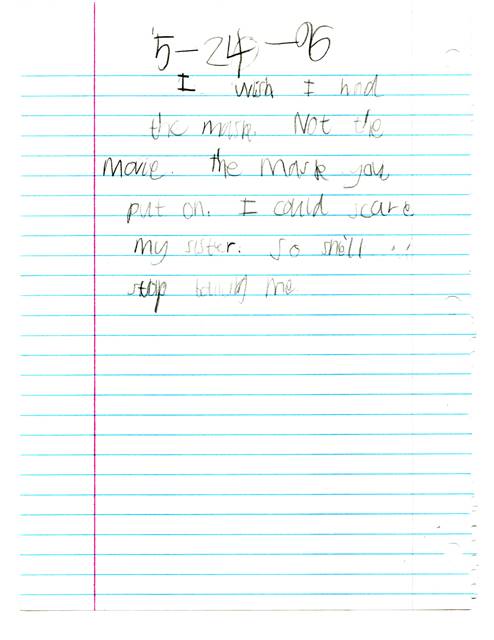 5-24-96
I wish I had
the mask. Not the
movie. the mask you
put on. I could scare
my sister. So shell
stop me